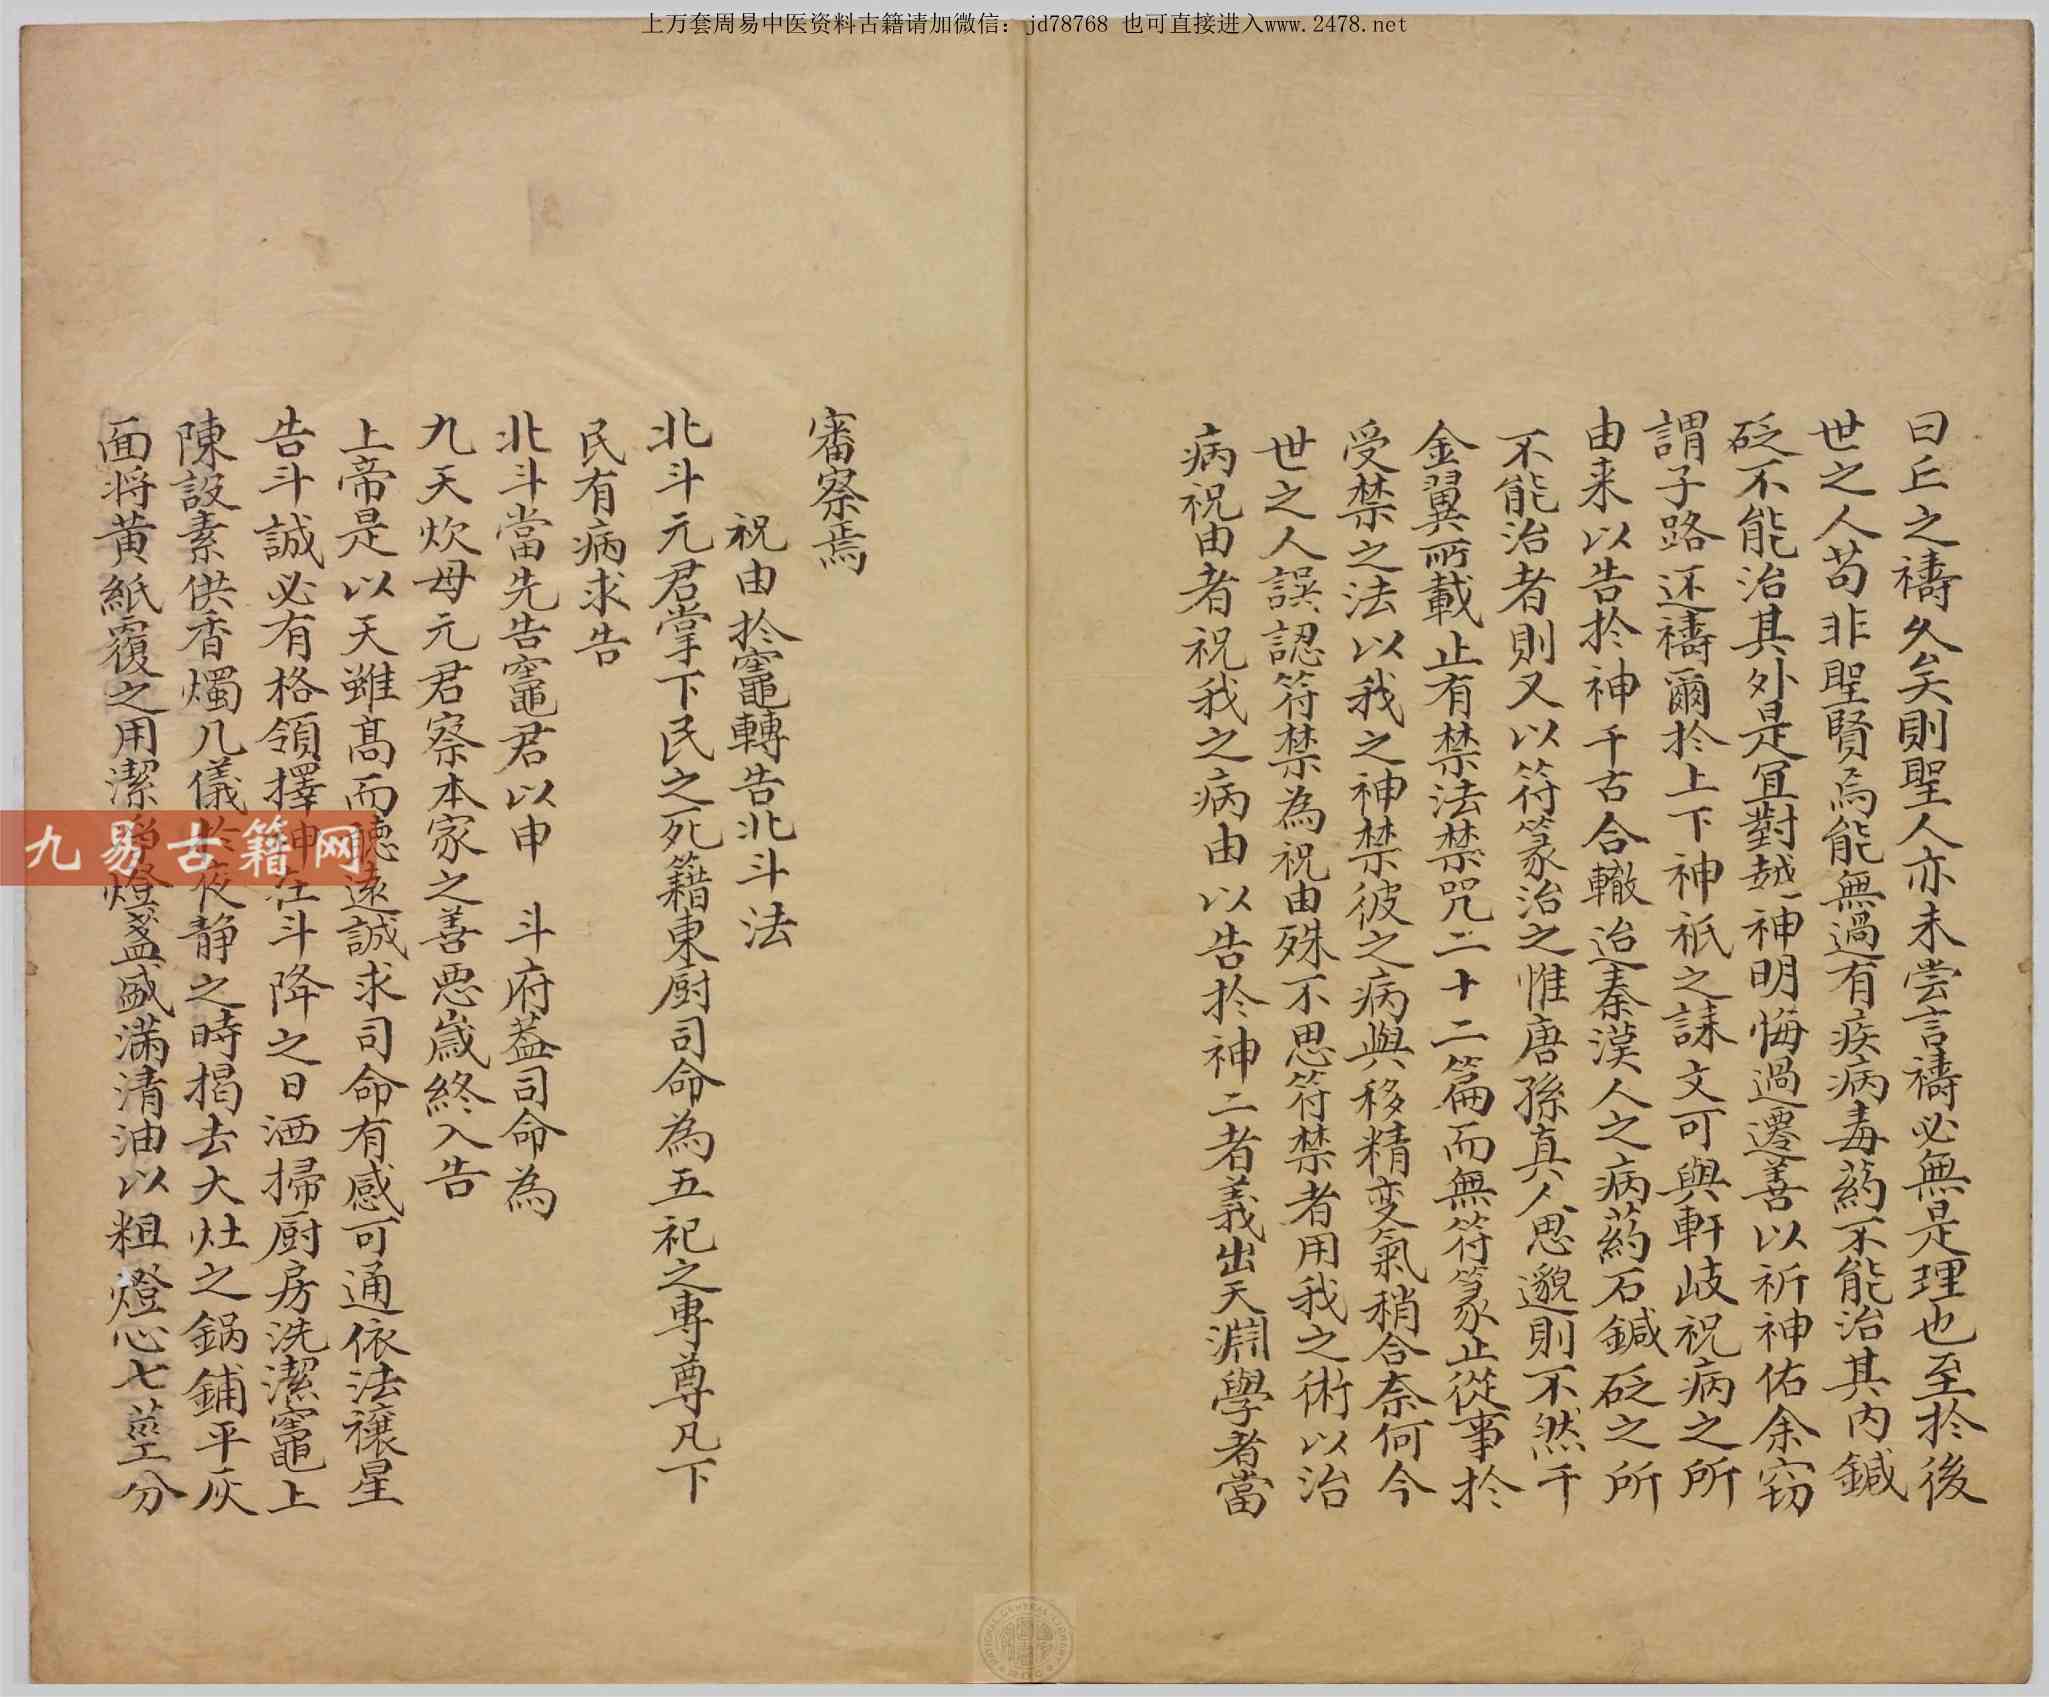 上万套周易中医资料古籍请加微信：jd78768 也可直接进入www.2478.net
曰丘之禱久矣則聖人亦未尝言禱必無是理也至扵後
世之人苟非聖賢焉能無過有疾病毒药不能治其内鍼
砭不能治其外是宜對越神明悔過遷善以祈神佑余窃
謂子路还禱爾扵上下神祇之誄文可與軒岐祝病之所
由来以告扵神千古合轍迨秦漢人之病药石鍼砭之所
不能治者則又以符篆治之惟唐孫真人思邈則不然千
金翼所載止有禁法禁咒二十二篇而無符篆止從事扵
受禁之法以我之神禁彼之病與移精变氣稍合奈何今
世之人誤認符禁為祝由殊不思符禁者用我之術以治
病祝由者祝我之病由以告扵神二者義出天淵學者當
審察焉
祝由扵竈轉告北斗法
北斗元君掌下民之死籍東厨司命為五祀之專尊凡下
民有病求告
北斗當先告竈君以申 斗府蓋司命為
九天炊母元君察本家之善恶歲終入告
上帝是以天雖髙而聽遠誠求司命有感可通依法禳星
告斗誠必有格領擇神在斗降之日洒掃厨房洗潔竈上
陳設素供香燭几儀於夜静之時揭去大灶之鍋鋪平灰
面将黄紙覆之用潔净燈盞盛滿清油以粗燈心七莖分
九易古籍网
NATIONAL CENTRAL LIBRARY